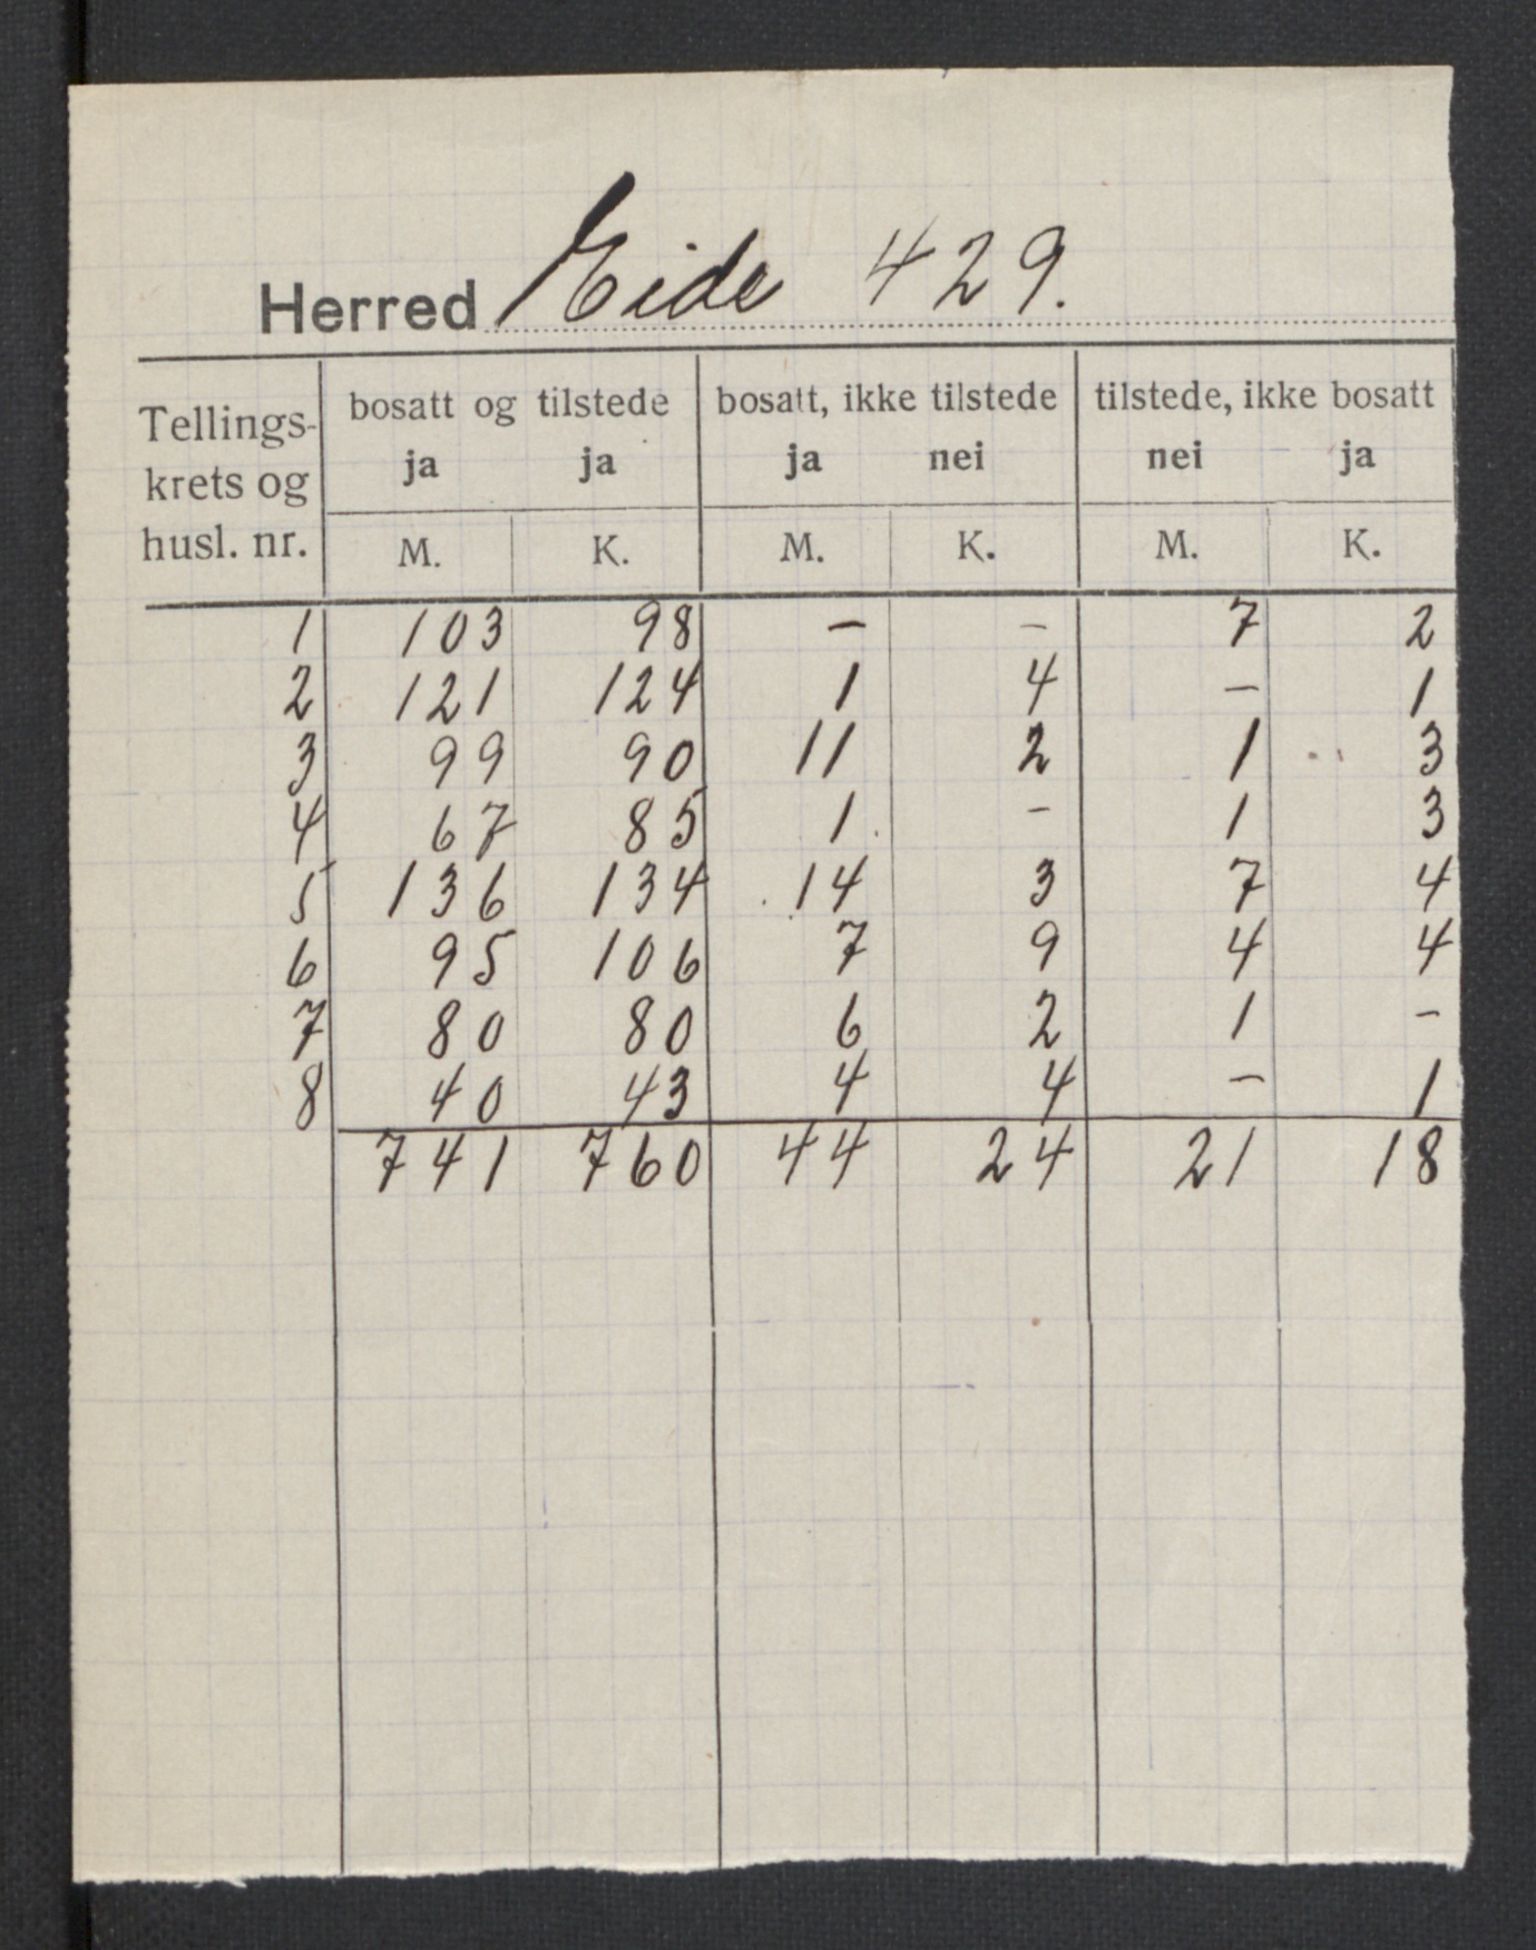 Herred Eide 429.
Tellings-krets og husl. nr. | bosatt og tilstede ja ja | bosatt, ikke tilstede ja nei | tilstede, ikke bosatt nei ja
M. K. M. K. M. K.
1 103 98 - - 7 2
2 121 124 1 4 - 1
3 99 90 11 2 1 3
4 67 85 1 - 1 3
5 136 134 14 3 7 4
6 95 106 7 9 4 4
7 80 80 6 2 1 -
8 40 43 4 4 - 1
741 760 44 24 21 18